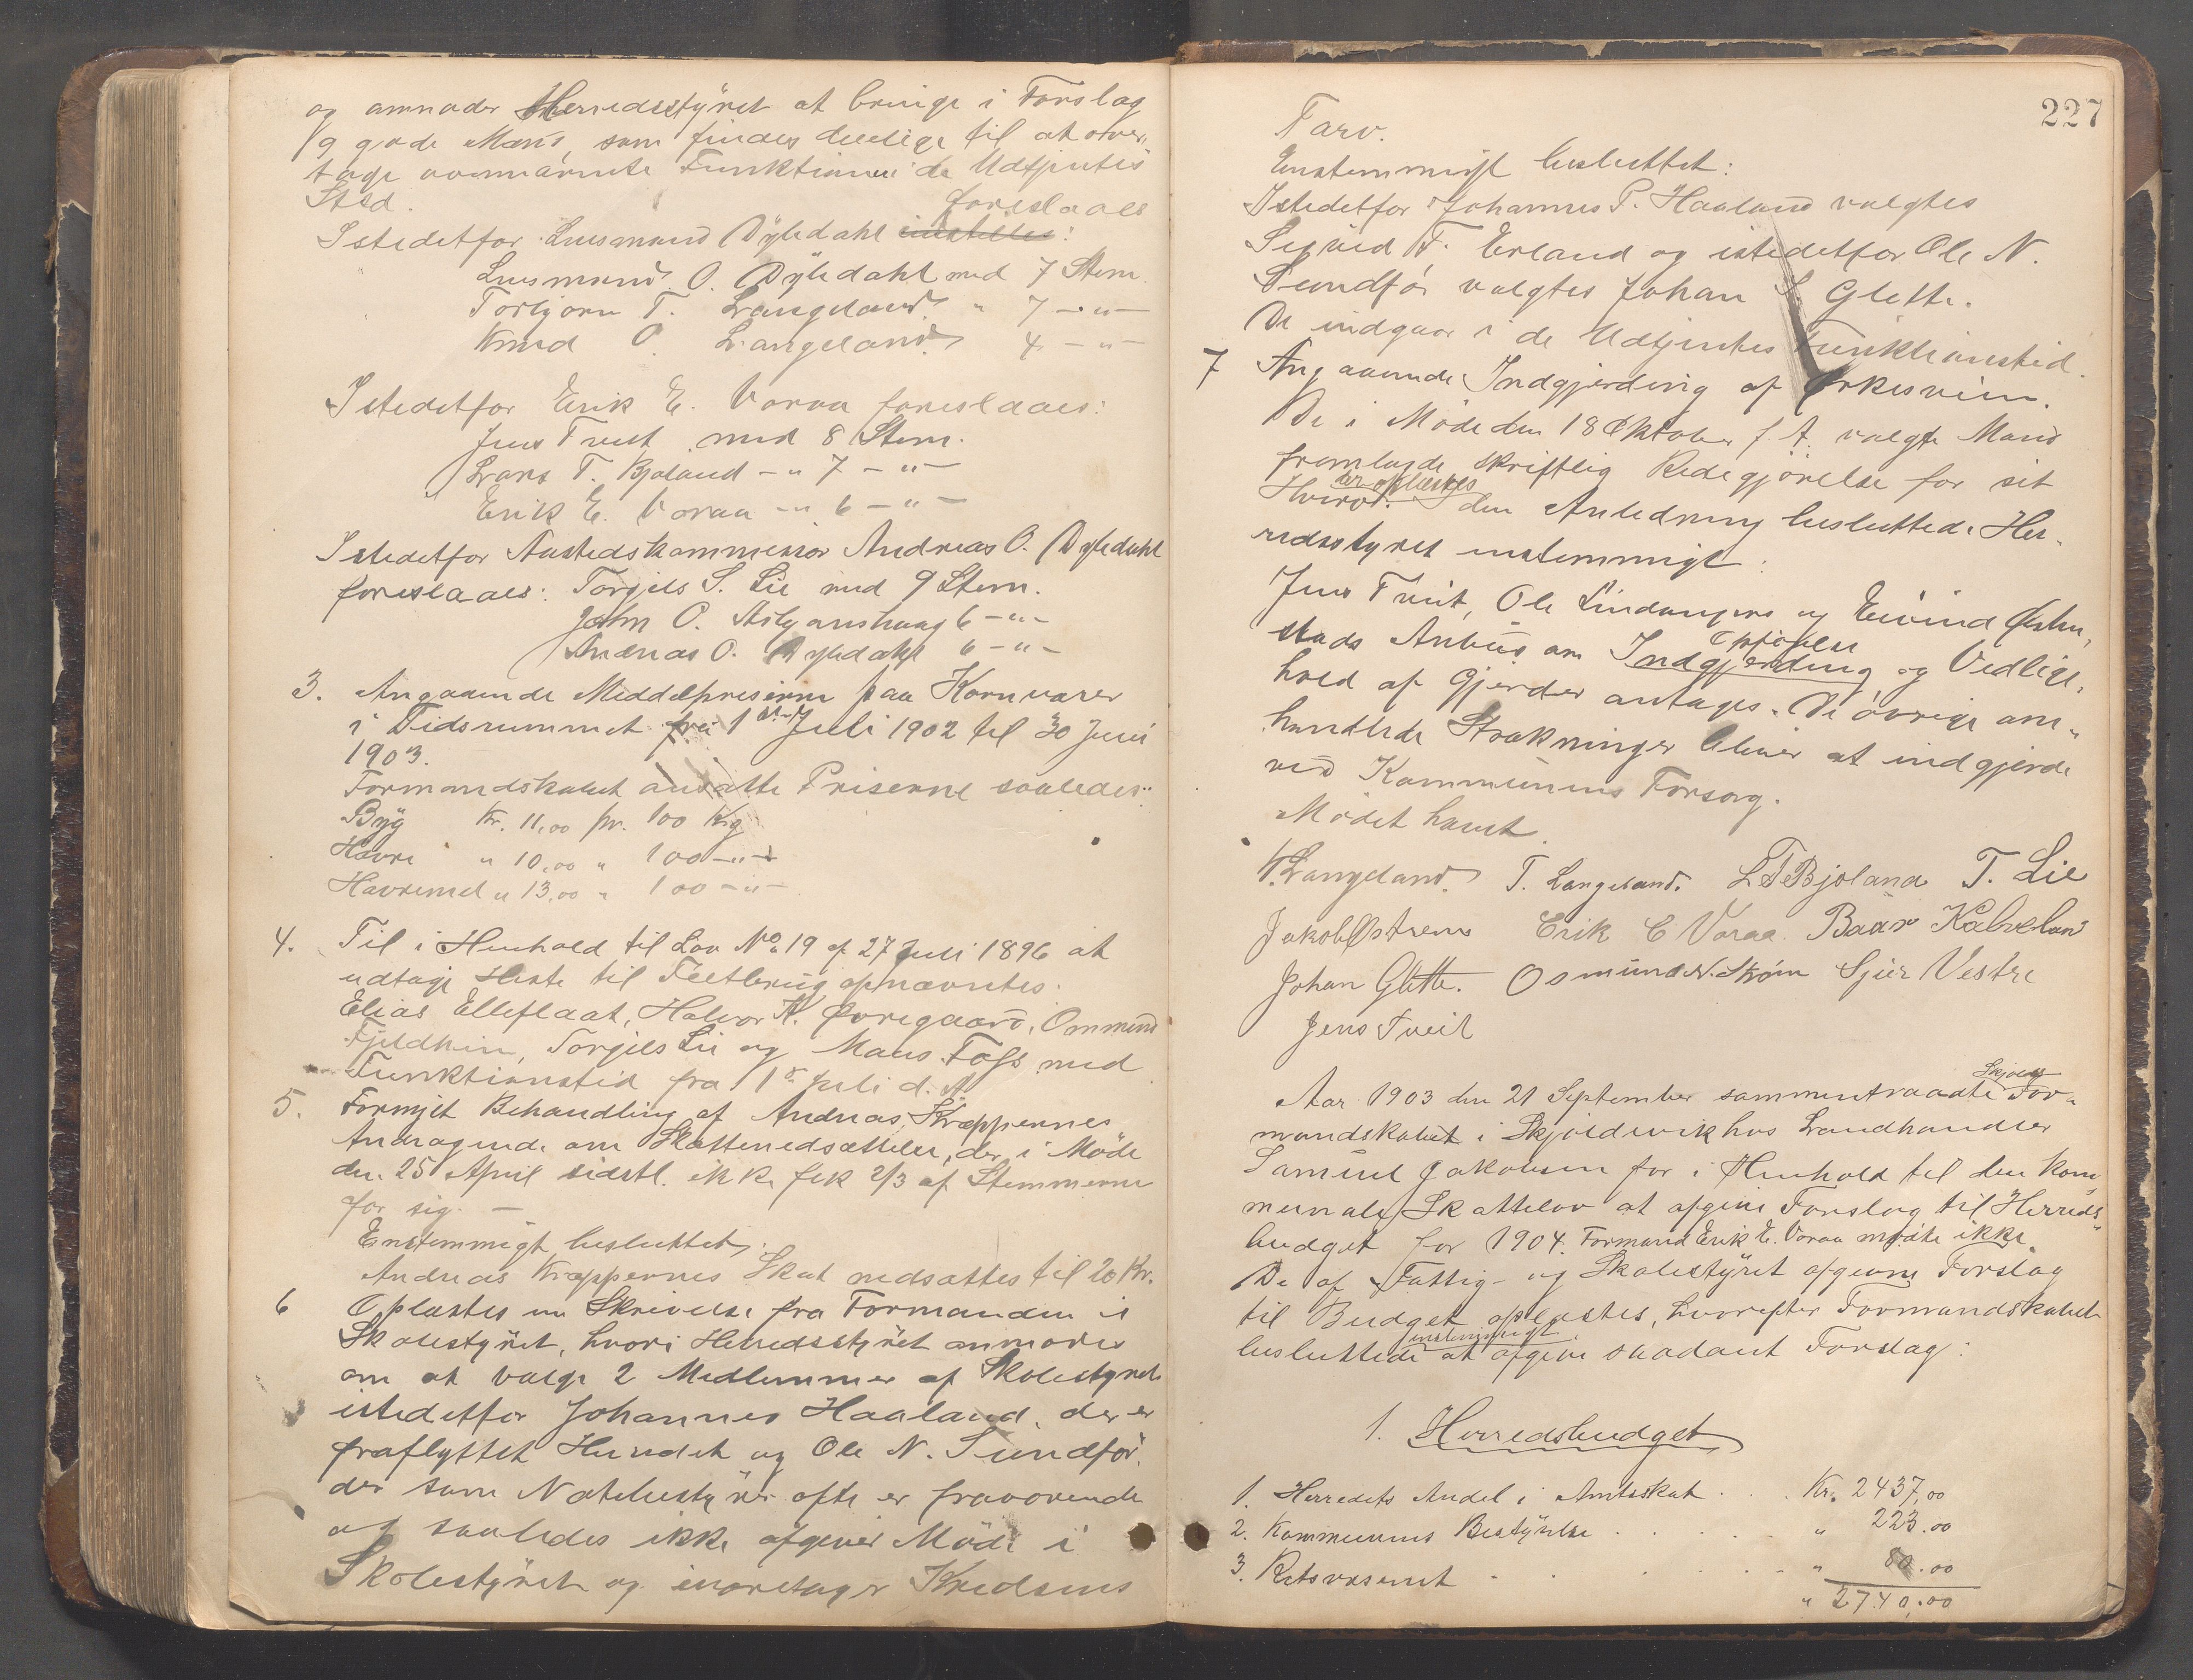 og anmoder Herredsstyret at bringe i Forslag
9 gode Mænd, som findes duelige til at over-
tage ovennævnte Funktioner i de Udtjentes
Sted.
foreslaaes
Istedetfor Lensmand Dyledahl indstilles:
Lensmand O. Dyledahl med 7 Stem.
Torbjørn T. Langeland " 7 - " -
Knud O. Langeland 4 - " -
Istedetfor Erik E. Voraa foreslaaes:
Jens Tveit med 8 Stem.
Lars T. Bjoland - " 7 - " -
Erik E. Voraa - " 6 - " -
Istedetfor Aastedskommissær Andreas O. Dyledahl
foreslaaes: Torgils S. Lie med 9 Stem.
John O. 6 - " -
Andreas O. Dyledahl 6 - " -
3. Angaaende Middelpriserne paa Kornvarer
i Tidsrummet fra 1st Juli 1902 til 30 Juni
1903.
Formandskabet ansatte Priserne saaledes:
Byg Kr. 11,00 pr. 100 Kg
Havre " 10,00 " 100 - " -
Havremel " 13,00 " 100 - " -
4. Til i Henhold til Lov No 19 af 27 Juli 1896 at
udtage Heste til Feltbrug opnævntes:
Elias Elleflaat, Halvor K. Øvregaard, Ommund
Fjeldheim, Torgils Lie og Mans Foss med
Funktionstid fra 1ste Juli d. A.
5. Fornyet Behandling af Andreas Kræppernes
Andragende om Skattenedsættelse, der i Møde
den 25 April sidstl. ikke fik 2/3 af Stemmerne
for sig. -
Enstemmigt besluttet:
Andreas Kræppernes Skat nedsættes til 20 Kr.
6 Oplæstes en Skrivelse fra Formanden i
Skolestyret, hvori Herredsstyret anmodes
om at vælge 2 Medlemmer af Skolestyret
istedetfor Johannes Haaland, der er
fraflyttet Herredet og Ole N. Sundfør,
der som Notebestyrer ofte er fraværende
og saaledes ikke afgiver Møde i
Skolestyret og ivaretager Kredsens
227
Tarv.
Enstemmigt besluttet:
Istedetfor Johannes P. Haaland valgtes
Sigved T. Erland og istedetfor Ole N.
Sundfør valgtes Johan S. Glette.
De indgaar i de Udtjentes Funktionstid.
7 Angaaende Indgjerding af Ørkesveien.
De i Møde den 18 Oktober f. A. valgte Mænd
fremlagde skriftlig Redegjørelse for sit
der oplæstes
Hverv. I den Anledning besluttede Her-
redsstyret enstemmigt:
Jens Tveit, Ole Lindanger og Eivind Østen-
Opførelse
stads Anbud om Indgjerding og Vedlige-
hold af Gjerder antages. De øvrige om-
handlede Strækninger bliver at indgjerde
ved Kommunens Forsorg.
Mødet hævet.
K. Langeland. T. Langeland. L T Bjoland T. Lie
Jakob Østrem Erik E Voraa. Baar Kalveland
Johan Glette. Osmund N. Strøm Sjur Vestre
Jens Tveit
Skjolds
Aar 1903 den 21 September sammentraadte For-
mandskabet i Skjoldevik hos Landhandler
Samuel Jakobsen for i Henhold til den kom-
munale Skattelov at afgive Forslag til Herreds-
budget for 1904. Formand Erik E. Voraa mødte ikke.
De af Fattig- og Skolestyret afgivne Forslag
til Budget oplæstes, hvorefter Formandskabet
enstemmigt
besluttede at afgive saadant Forslag:
1. Herredsbudget
1. Herredets Andel i Amtsskat . . Kr. 2437,00
2. Kommunens Bestyrelse . . . . " 223.00
3. Retsvæsenet . . . . . " 80.00
" 2740,00